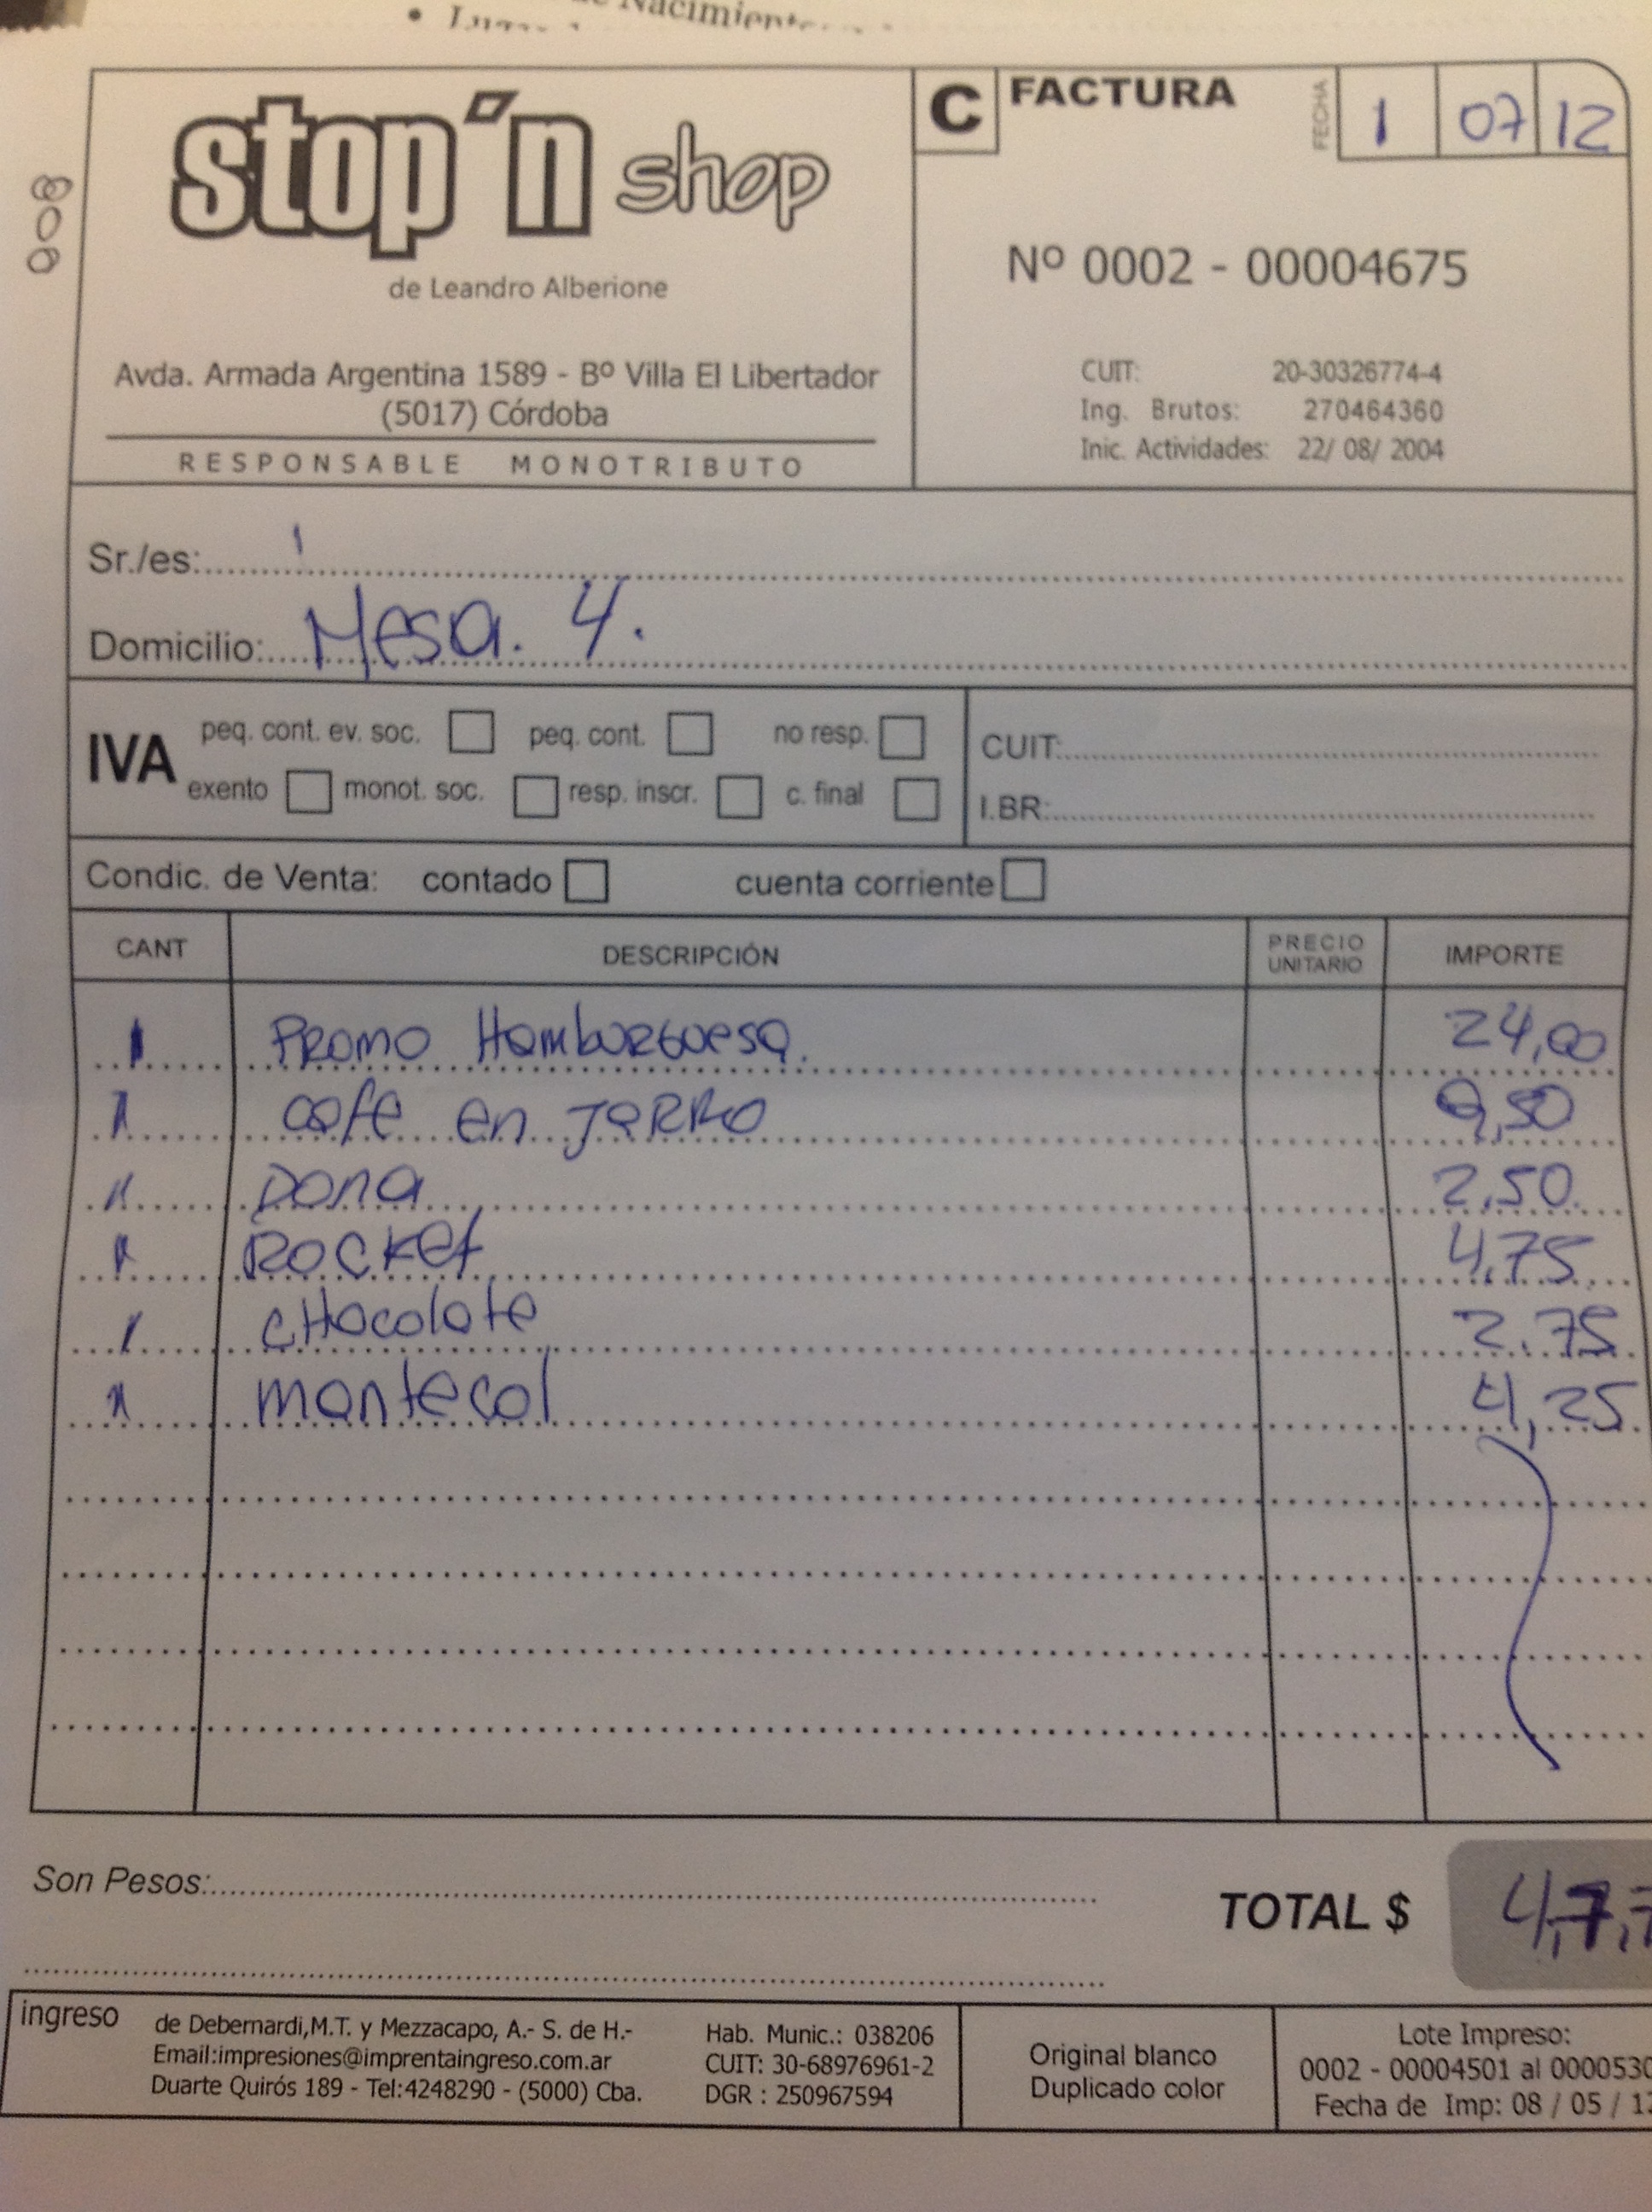 de Nacimiento
stop´n shop
de Leandro Alberione
Avda. Armada Argentina 1589 - Bº Villa El Libertador
(5017) Córdoba
RESPONSABLE MONOTRIBUTO
C FACTURA
FECHA 1 07 12
Nº 0002 - 00004675
CUIT: 20-30326774-4
Ing. Brutos: 270464360
Inic. Actividades: 22/ 08/ 2004
Sr./es:
Domicilio: Mesa. 4.
IVA peq. cont. ev. soc. peq. cont. no resp.
exento monot. soc. resp. inscr. c. final
CUIT:
I.BR:
Condic. de Venta: contado cuenta corriente
CANT DESCRIPCIÓN PRECIO UNITARIO IMPORTE
1 Promo Hamburguesa. 24,00
1 cafe en Jarro 9,50
Dona 2,50
1 Rocket 4,75
1 CHocolate 2.75
mantecol 4,25
Son Pesos:
TOTAL $ 4,7,7
ingreso
de Debernardi,M.T. y Mezzacapo, A.- S. de H.-
Email:impresiones@imprentaingreso.com.ar
Duarte Quirós 189 - Tel:4248290 - (5000) Cba.
Hab. Munic.: 038206
CUIT: 30-68976961-2
DGR : 250967594
Original blanco
Duplicado color
Lote Impreso:
0002 - 00004501 al 0000530
Fecha de Imp: 08 / 05 / 12